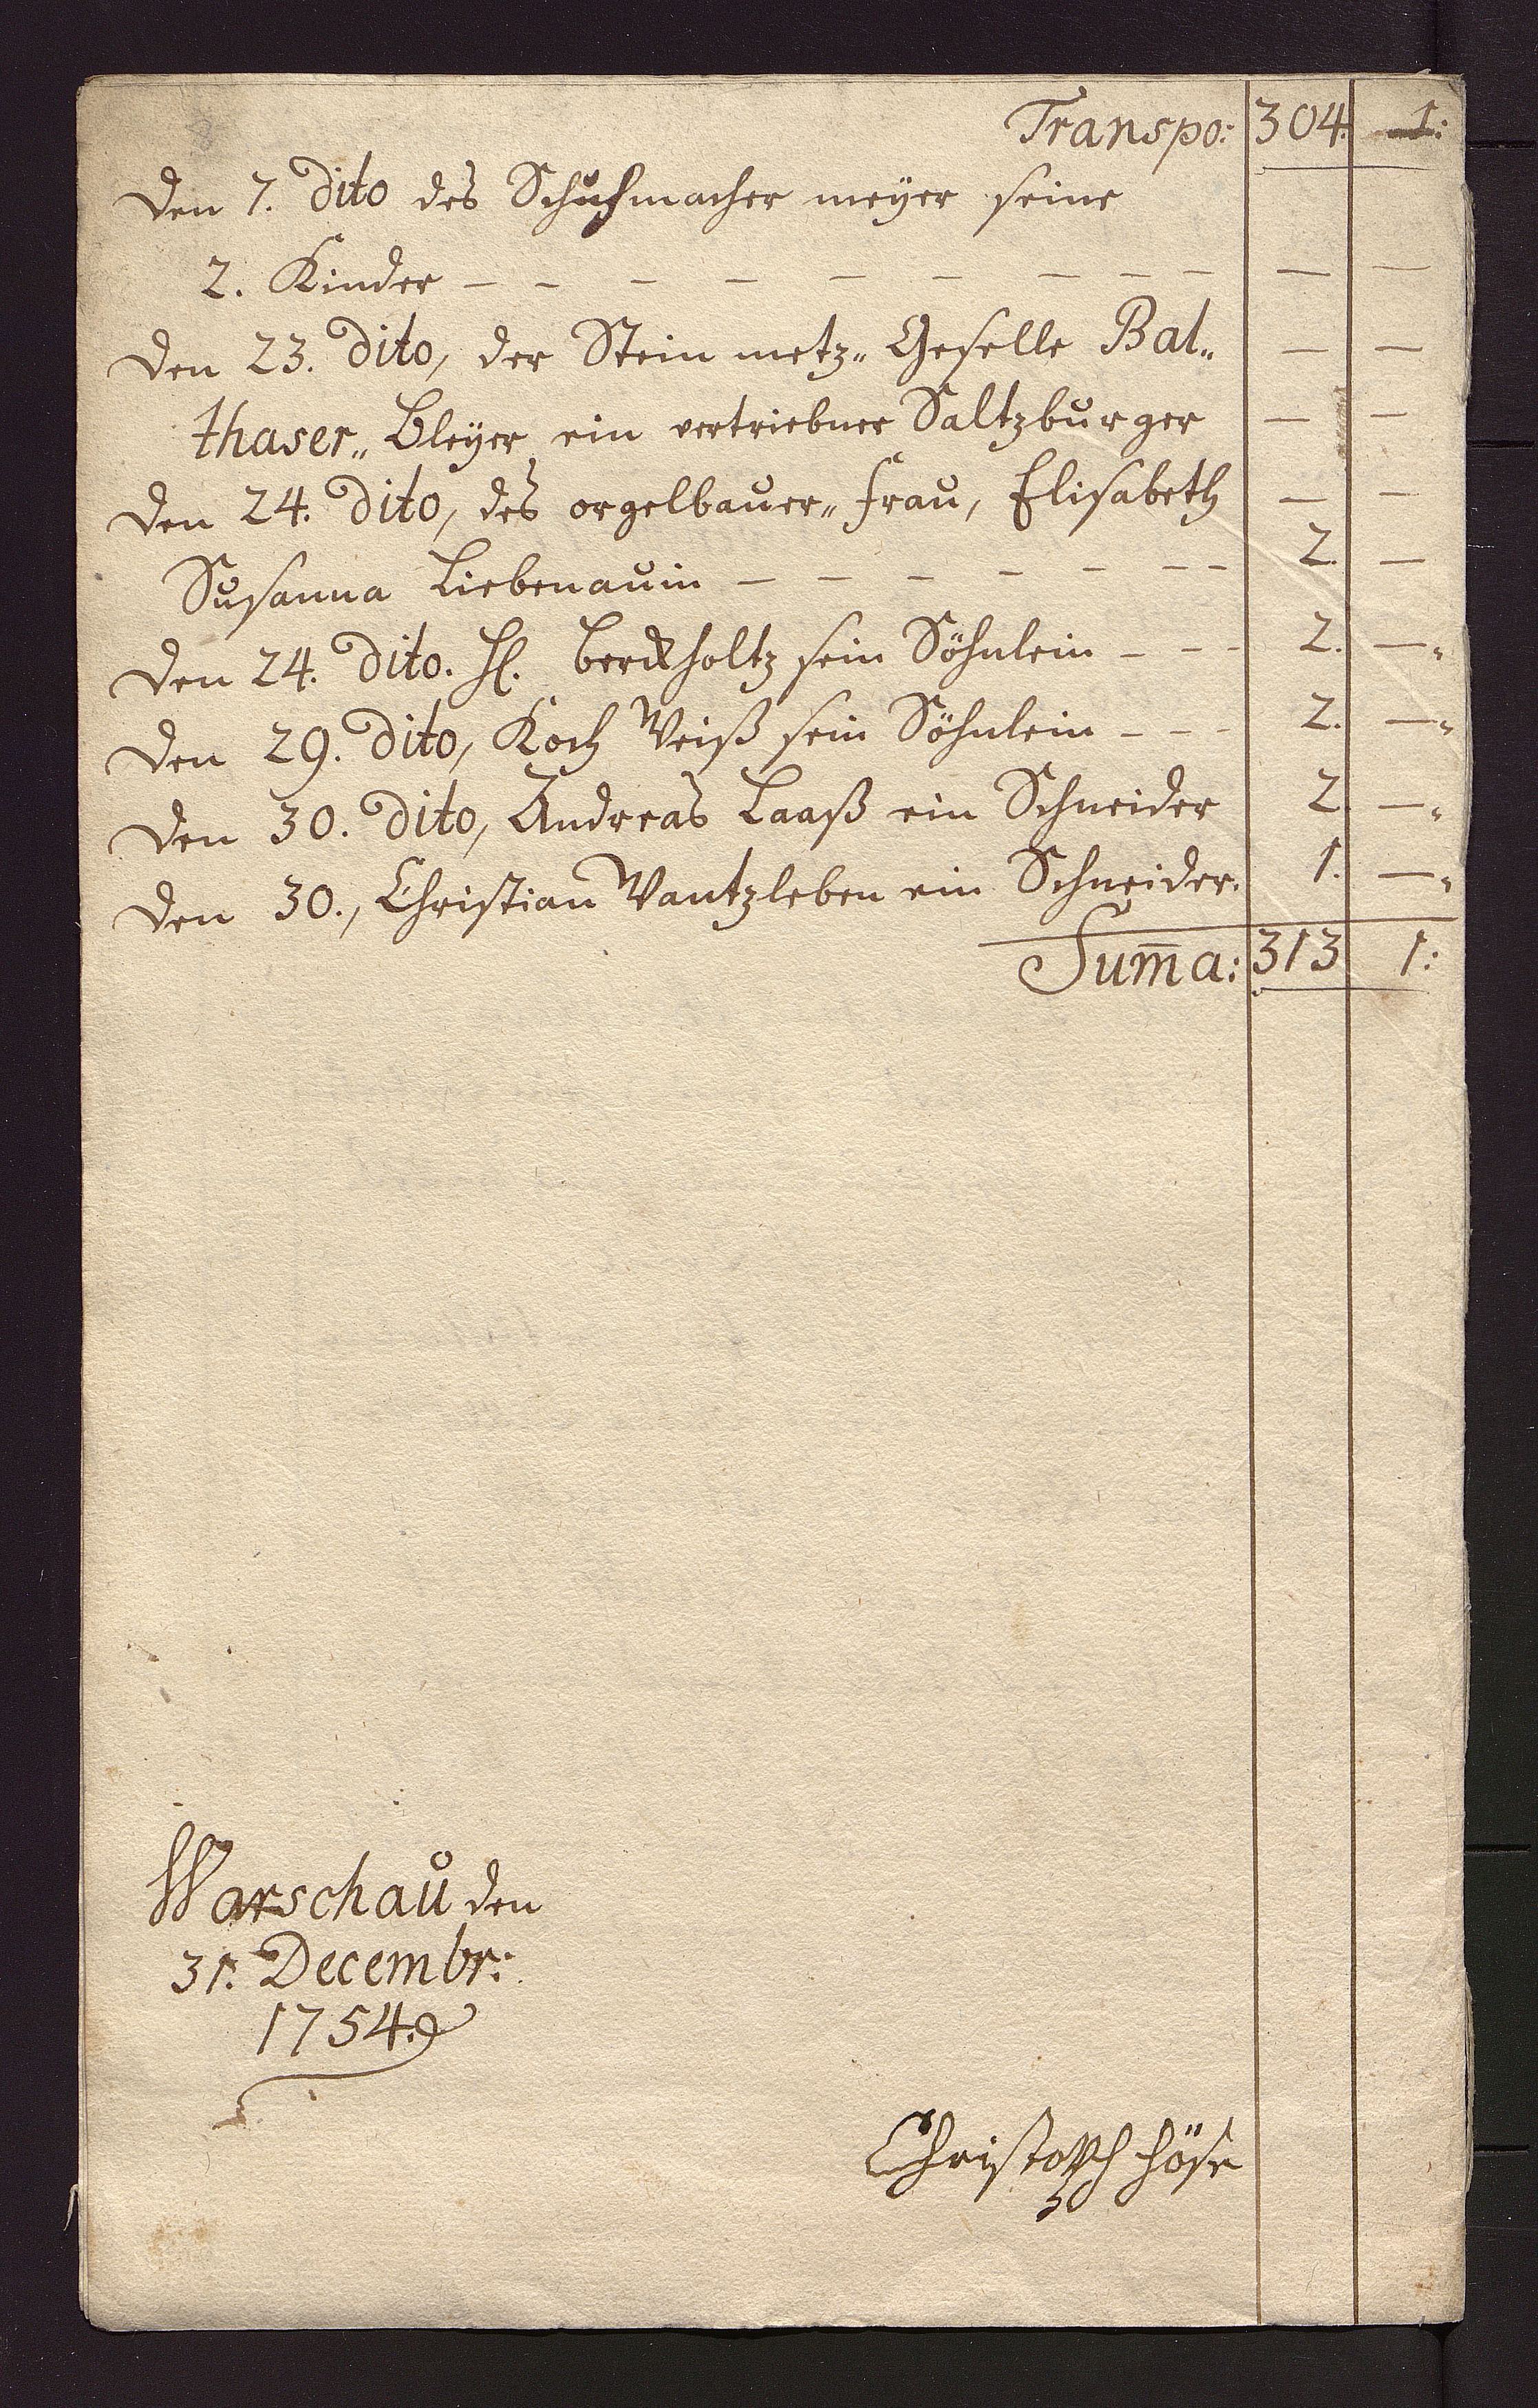 Transpo: 304. 1:
Den 7. Dito des Schuhmacher meÿer seine
2. Kinder - - - - - - - - - — —
Den 23. Dito, der Stein metz„ Geselle Bal„ — —
thaser„ Bleÿer ein vertriebner Saltzburger — —
Den 24. Dito, des orgelbauer„ frau, Elisabeth — —
Susanna Liebenauin - - - - - - - 2. —
Den 24. Dito. H. berckholtz sein Söhnlein - - - 2. —„
Den 29. Dito, Koch Weiß sein Söhnlein - - - 2. —„
Den 30. Dito, Andreas Laaß ein Schneider 2. —„
Den 30., Christian Wantzleben ein Schneider. 1. —„
Sum̅a: 313 1:
Warschau den
31. Decembr:
1754.
Christoph Höse